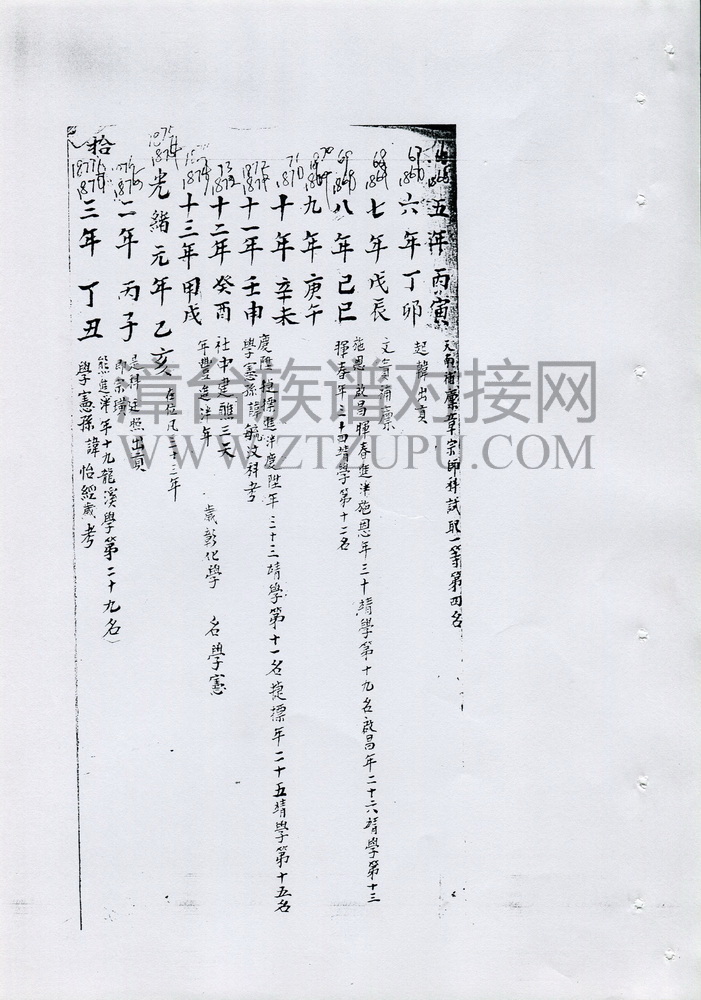 五年丙寅
天南補廩章宗師科試取一等第四名
六年丁卯
起韓出貢
七年戊辰
文貢補廩
施恩啟昌暉春進泮施恩年三十靖學第十九名啟昌年二十六靖學第十三
八年己巳
暉春年三十四靖學第十二名
九年庚午
十年辛未
慶陞捷標進泮慶陞年三十三靖學第十一名捷標年二十五靖學第十五名
十一年壬申
學憲孫諱毓汶科考
十二年癸酉
社中建醮三天
十三年甲戌
年豐進泮年 歲彰化學 名學憲
光緒元年乙亥
在位凡三十三年
二年丙子
是科
出貢
即宗璜
熊進泮年十九龍溪學第二十九名
三年丁丑
學憲孫諱怡經歲考
拾
漳台族谱对接网
WWW.ZTZUPU.COM